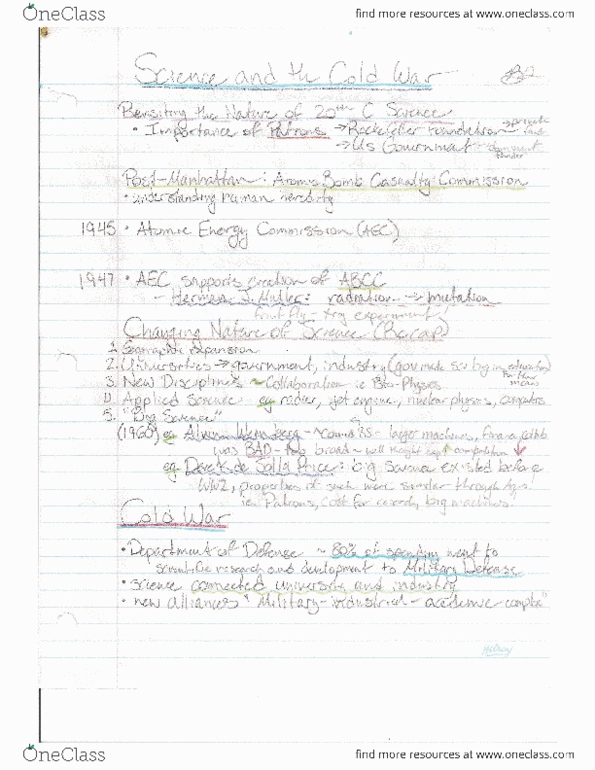 OneClass
find more resources at www.oneclass.com
Science and the Cold War
Revisiting the Nature of 20th C Science
• Importance of Patrons → Rockefeller Foundation → private
→ US Government - dominant
funder
Post-Manhattan: Atomic Bomb Casualty Commission
• understanding human heredity
1945 • Atomic Energy Commission (AEC)
1947 • AEC supports creation of ABCC
- Herman J. Muller: radiation → mutation
fruit fly - experiment!
Changing Nature of Science (Recap)
1. Geographic Expansion
2. Universities → government, industry (gov made sci big in
for their
means
3. New Disciplines ~ Collaboration ie Bio-Physics
4. Applied Science eg radar, jet engine, nuclear physics, computers
5. "Big Science"
(1960) eg Alvin Weinberg - larger machines,
was BAD - too broad - competition ↓
eg. Derek de Solla Price: big Science existed before
WW2, properties of such were similar through ages!
ie. Patrons, cost for records, big machines.
Cold War
• Department of Defense ~ 80% of spending went to
scientific research and development to Military Defense
• science connected university and industry
• new alliances "Military-industrial-academic-complex"
OneClass
find more resources at www.oneclass.com